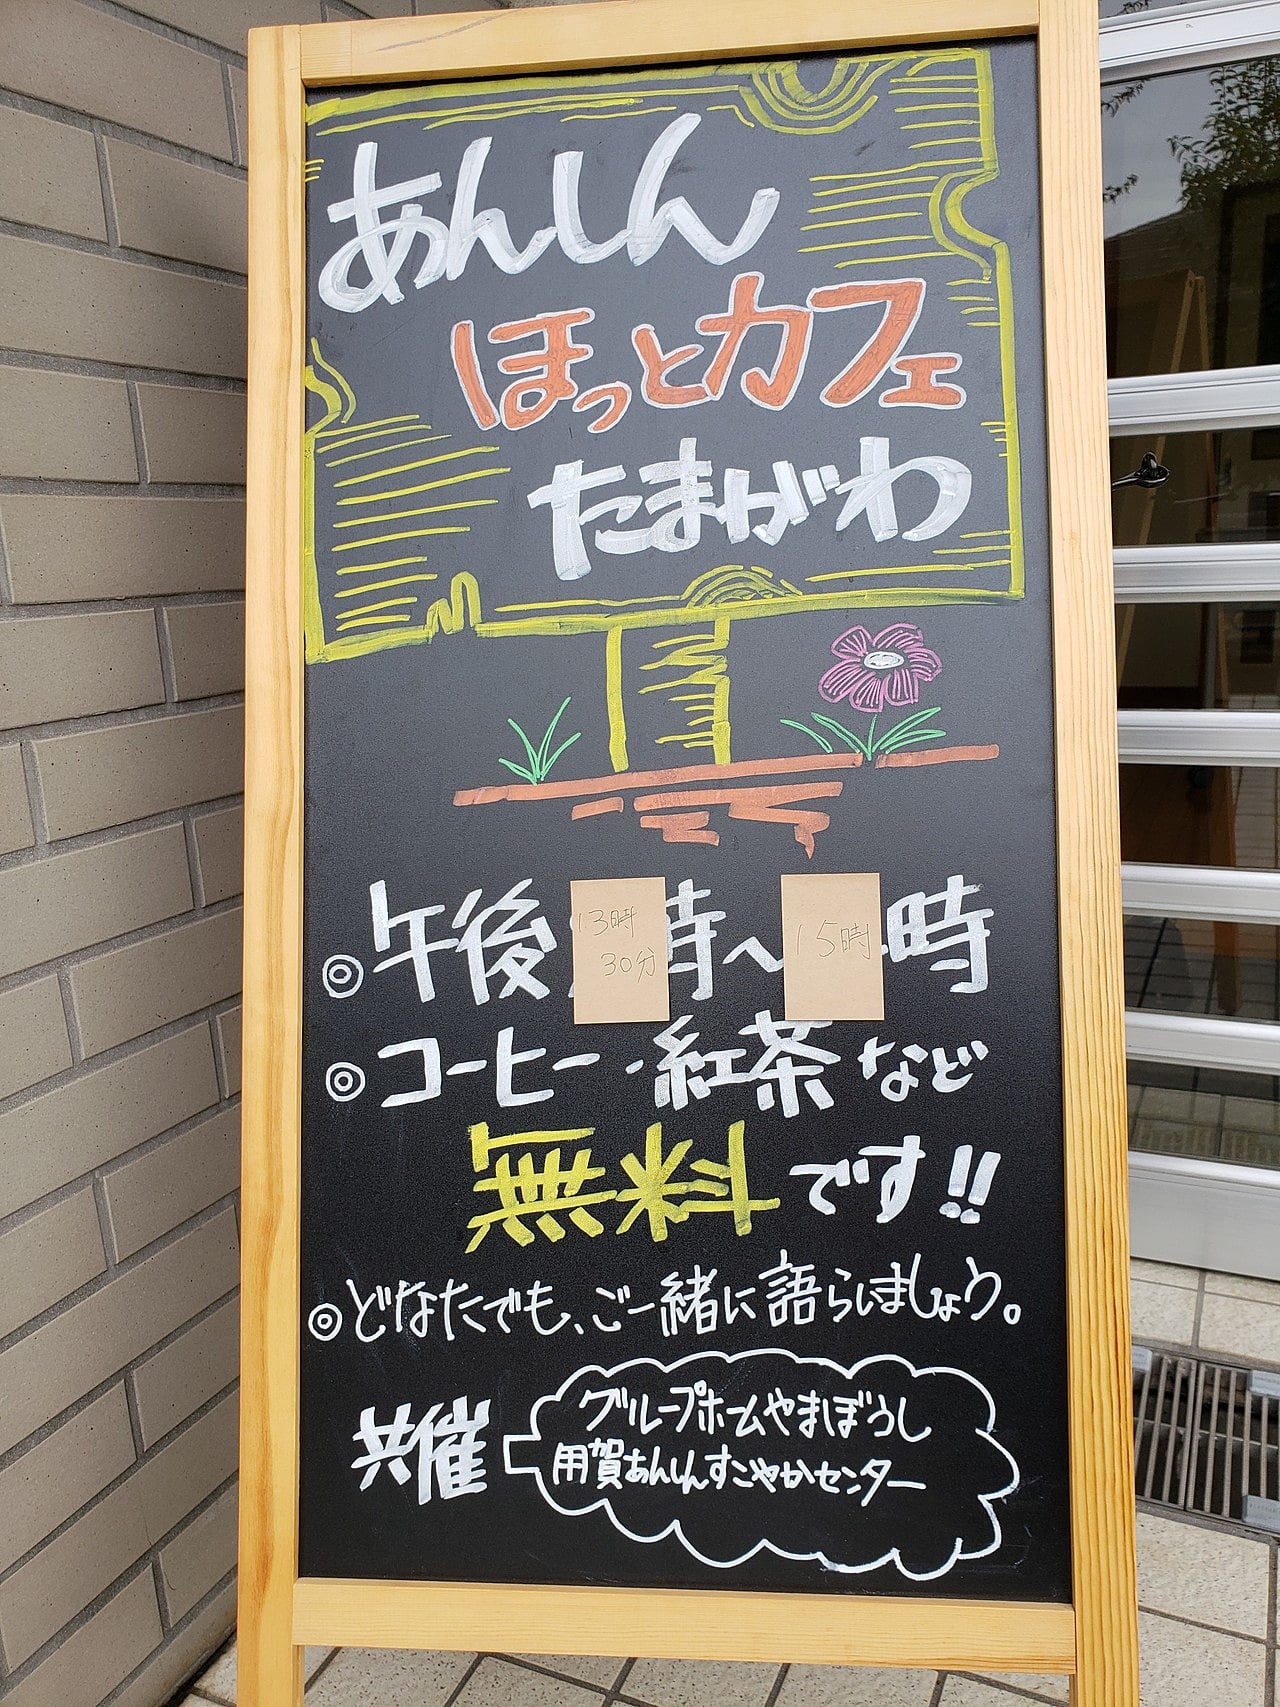 あんしん
ほっとカフェ
たまがわ
◎午後13時30分時〜15時時
◎コーヒー・紅茶など
無料です!!
◎どなたでも、ご一緒に語らいましょう。
共催
グループホームやまぼうし
用賀あんしんすこやかセンター